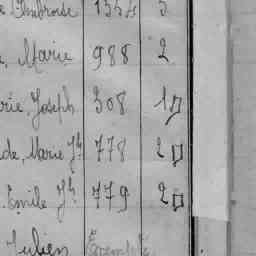 Ambroise 1334 3
, Marie 988 2
rie, Joseph 308 1
de, Marie Jh 778 2
Emile Jh 779 2
Julien Exempté